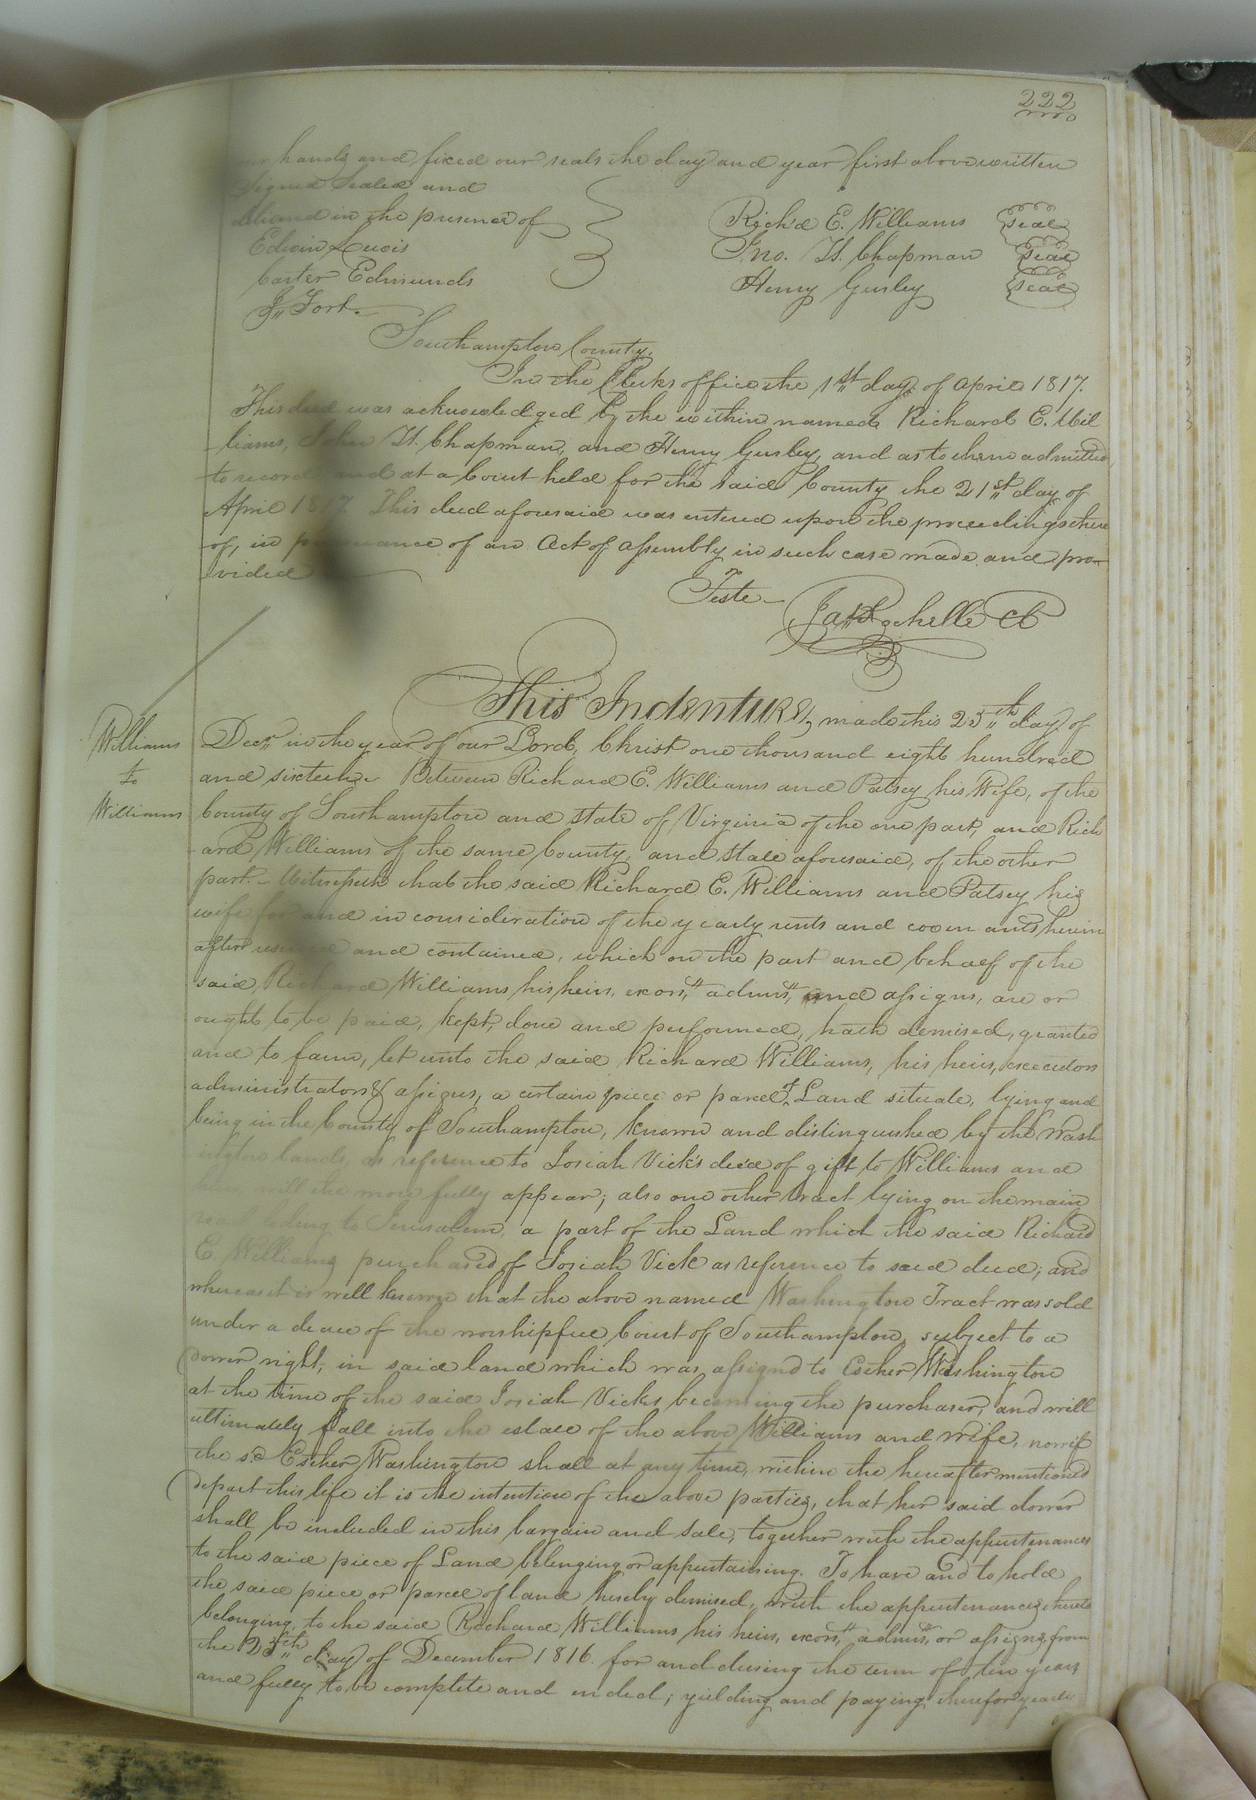 222
our hands and fixed our seals the day and year first above written
Signed Sealed and
deliverd in the presence of
Edwin Lewis
Carter Edmunds
J,, Fort.
Rich'd E. Williams seal
Jno. H. Chapman seal
Henry Gurley seal
Southampton County.
In the Clerks office the 1st day of April 1817.
This deed was acknowledged by the within named Richard E. Wil
liams, John H. Chapman, and Henry Gurley, and as to them admitted
to record and at a Court held for the said County the 21st day of
April 1817 This deed aforesaid was entered upon the proceedings there
of, in pursuance of an Act of Assembly in such case made and pro-
vided
Teste
Jas Rochelle CC
Williams
to
Williams
This Indenture, made this 25th day of
Decr in the year of our Lord, Christ one thousand eight hundred
and sixteen Between Richard E. Williams and Patsey his Wife, of the
County of Southampton and State of Virginia of the one part, and Rich
ard Williams of the same County, and State aforesaid, of the other
part. Witnesseth that the said Richard E. Williams and Patsey his
wife for and in consideration of the yearly rents and covenants herein
after and contained, which on the part and behalf of the
said, Richard Williams his heirs, exors, admrs, and assigns, are or
ought to be paid, kept, done and performed, hath demised, granted
and to farm, let unto the said Richard Williams, his heirs, executors
administrators & assigns, a certain piece or parcel of Land situate, lying and
being in the County of Southampton, known and distinguished by the Wash
ington lands, as reference to Josiah Vick's deed of gift to Williams and
will the more fully appear; also one other tract lying on the main
road leding to Jerusalem, a part of the Land which the said Richard
E. Williams purchased of Josiah Vick as reference to said deed; and
whereas it is well known that the above named Washington Tract was sold
under a decree of the worshipfull Court of Southampton, subject to a
dower right, in said land which was assignd to Esther Washington
at the time of the said Josiah Vicks becoming the purchaser, and will
ultimately fall into the estate of the above Williams and wife, now if
the sd Esther Washington shall at any time, within the hereafter mentioned
depart this life it is the intention of the above parties, that her said dower
shall be included in this bargain and sale, together with the appurtenances
to the said piece of Land belonging or appertaining. To have and to hold
the said piece or parcel of land hereby demised, with the appurtenances thereto
belonging, to the said Richard Williams his heirs, exors, admrs, or assigns, from
the 25th day of December 1816 for and during the term of ten years
and fully to be complete and ended; yielding and paying therefor yearly